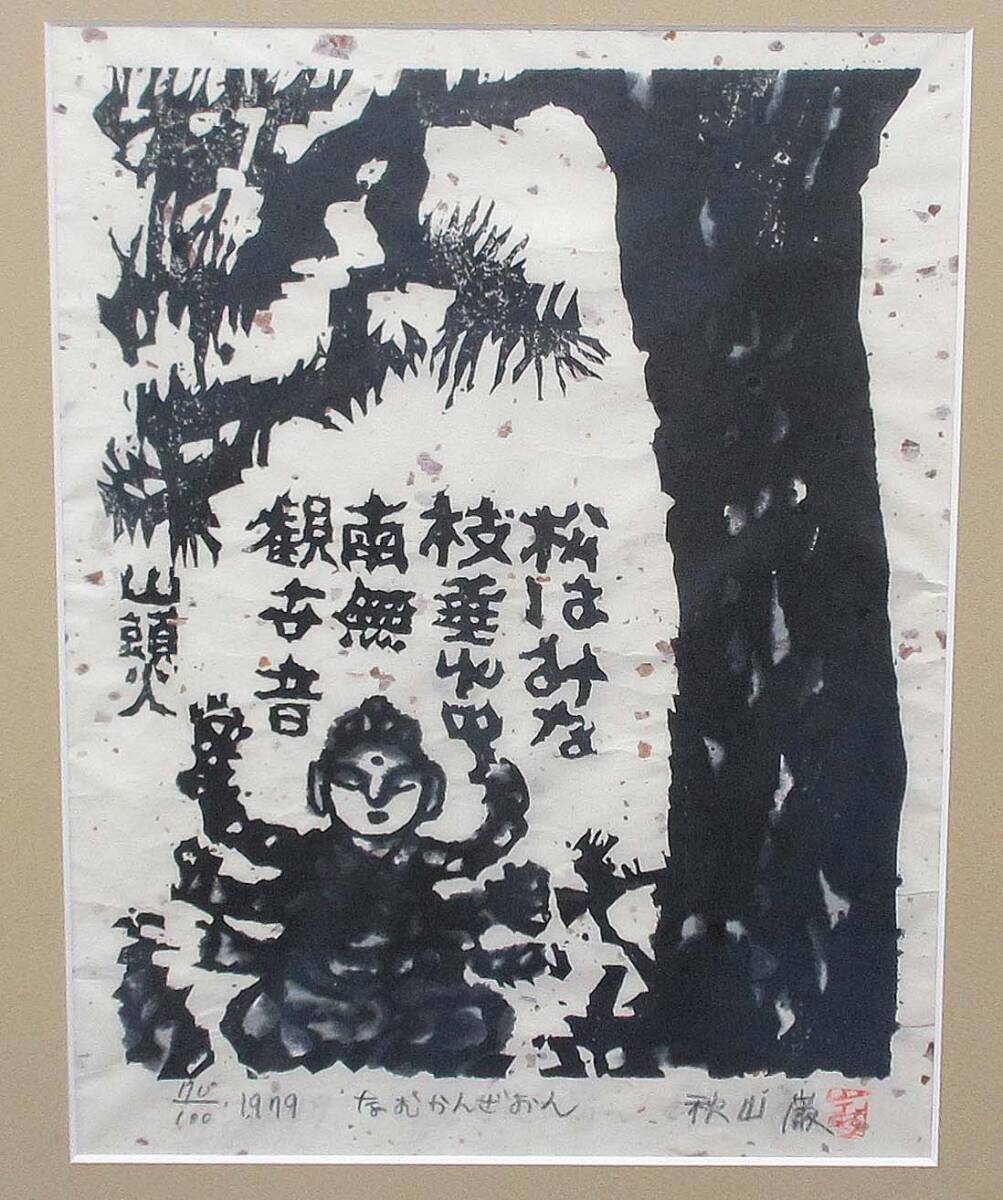 松はみな
枝垂れて
南無
観世音
山頭火
70/100 . 1979 なむかんぜおん 秋山 巌